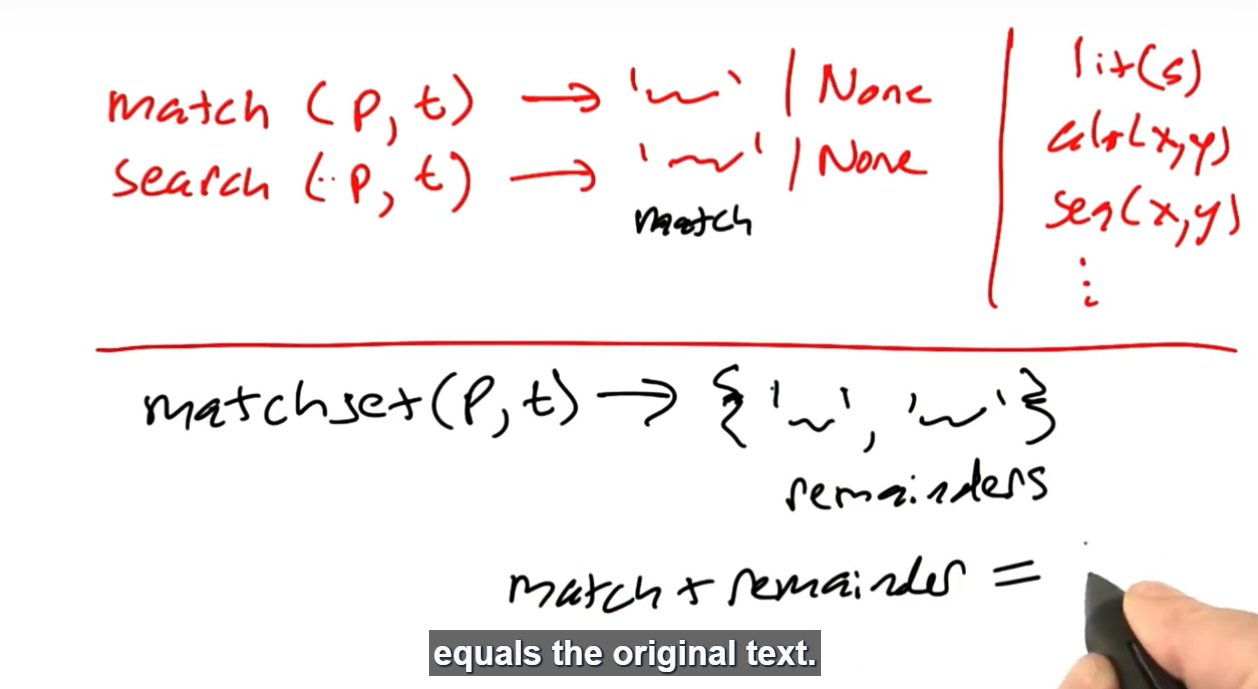 match (p, t) → '~' | None
search (p, t) → '~' | None
match
lit(s)
alt(x,y)
seq(x,y)
⋮
matchset(P, t) → {'~', '~'}
remainders
match + remainder =
equals the original text.